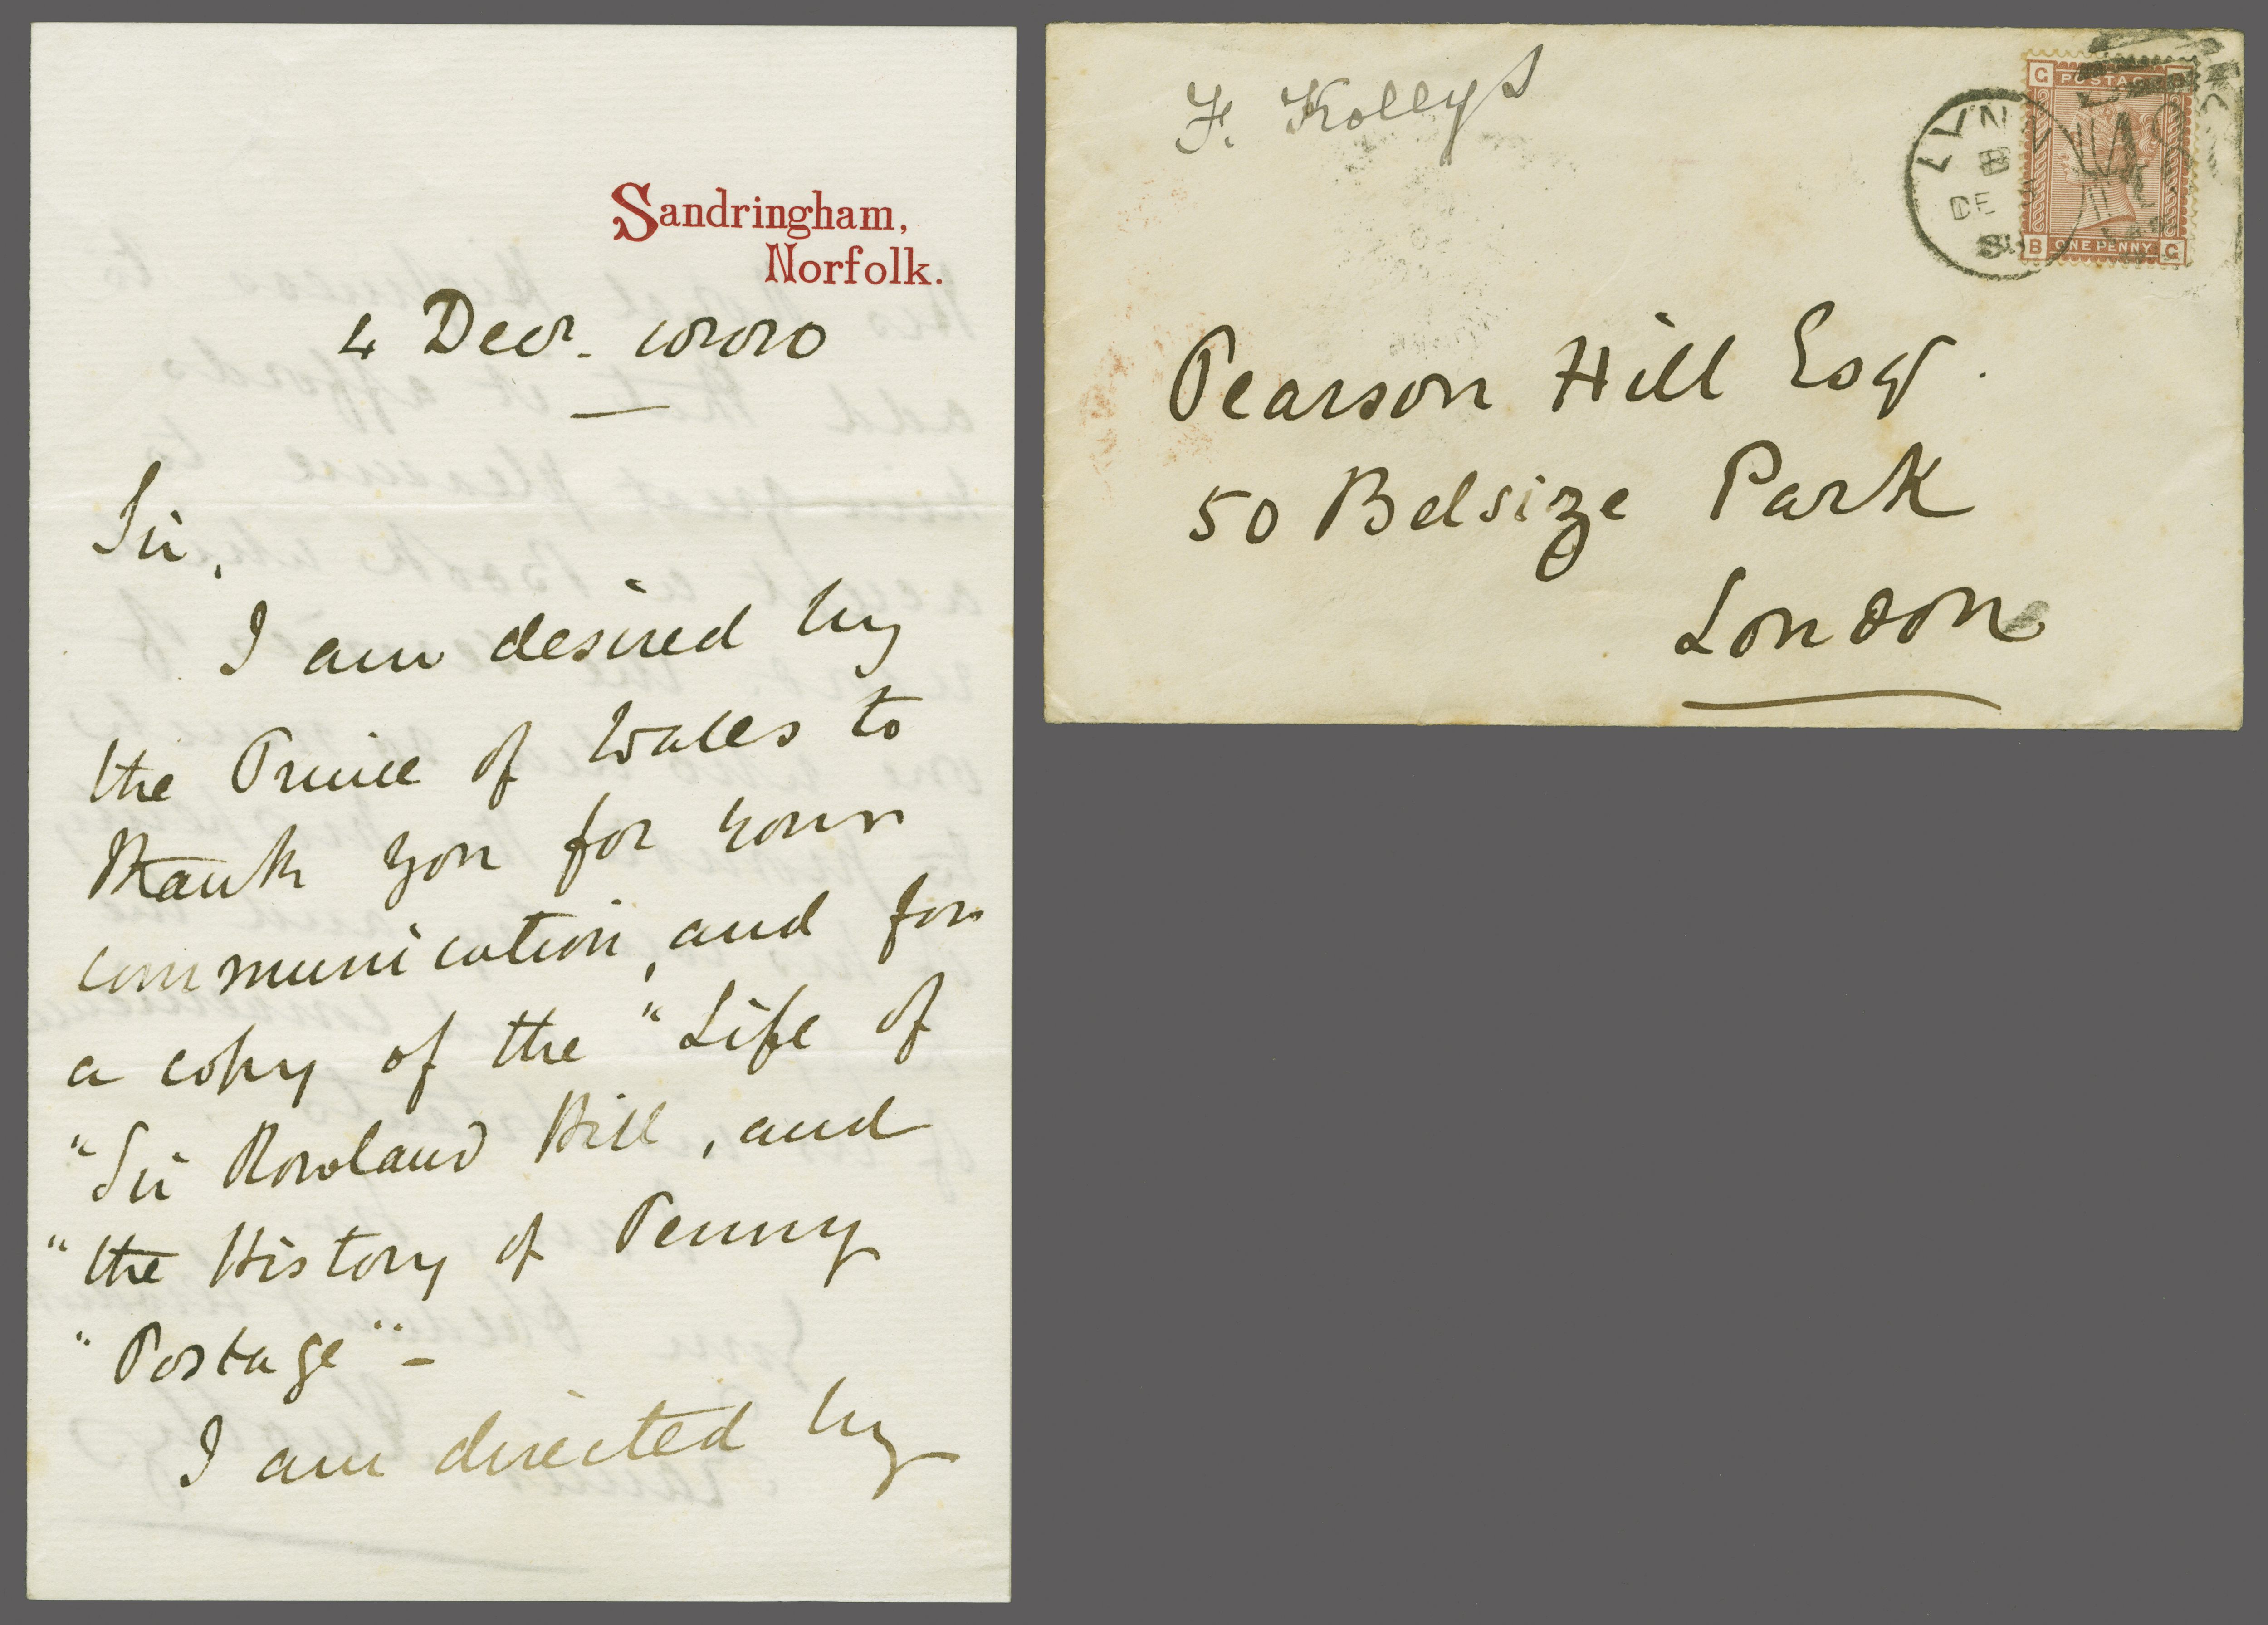 Sandringham,
Norfolk.
4 Decr. 1880
Sir,
I am desired by
the Prince of Wales to
thank you for your
communication, and for
a copy of the "Life of
"Sir Rowland Hill, and
"the History of Penny
"Postage" -
I am directed by
F. Kollys
LYNN
B
DE
POSTAGE
G
B ONE PENNY G
Pearson Hill Esqr.
50 Belsize Park
London